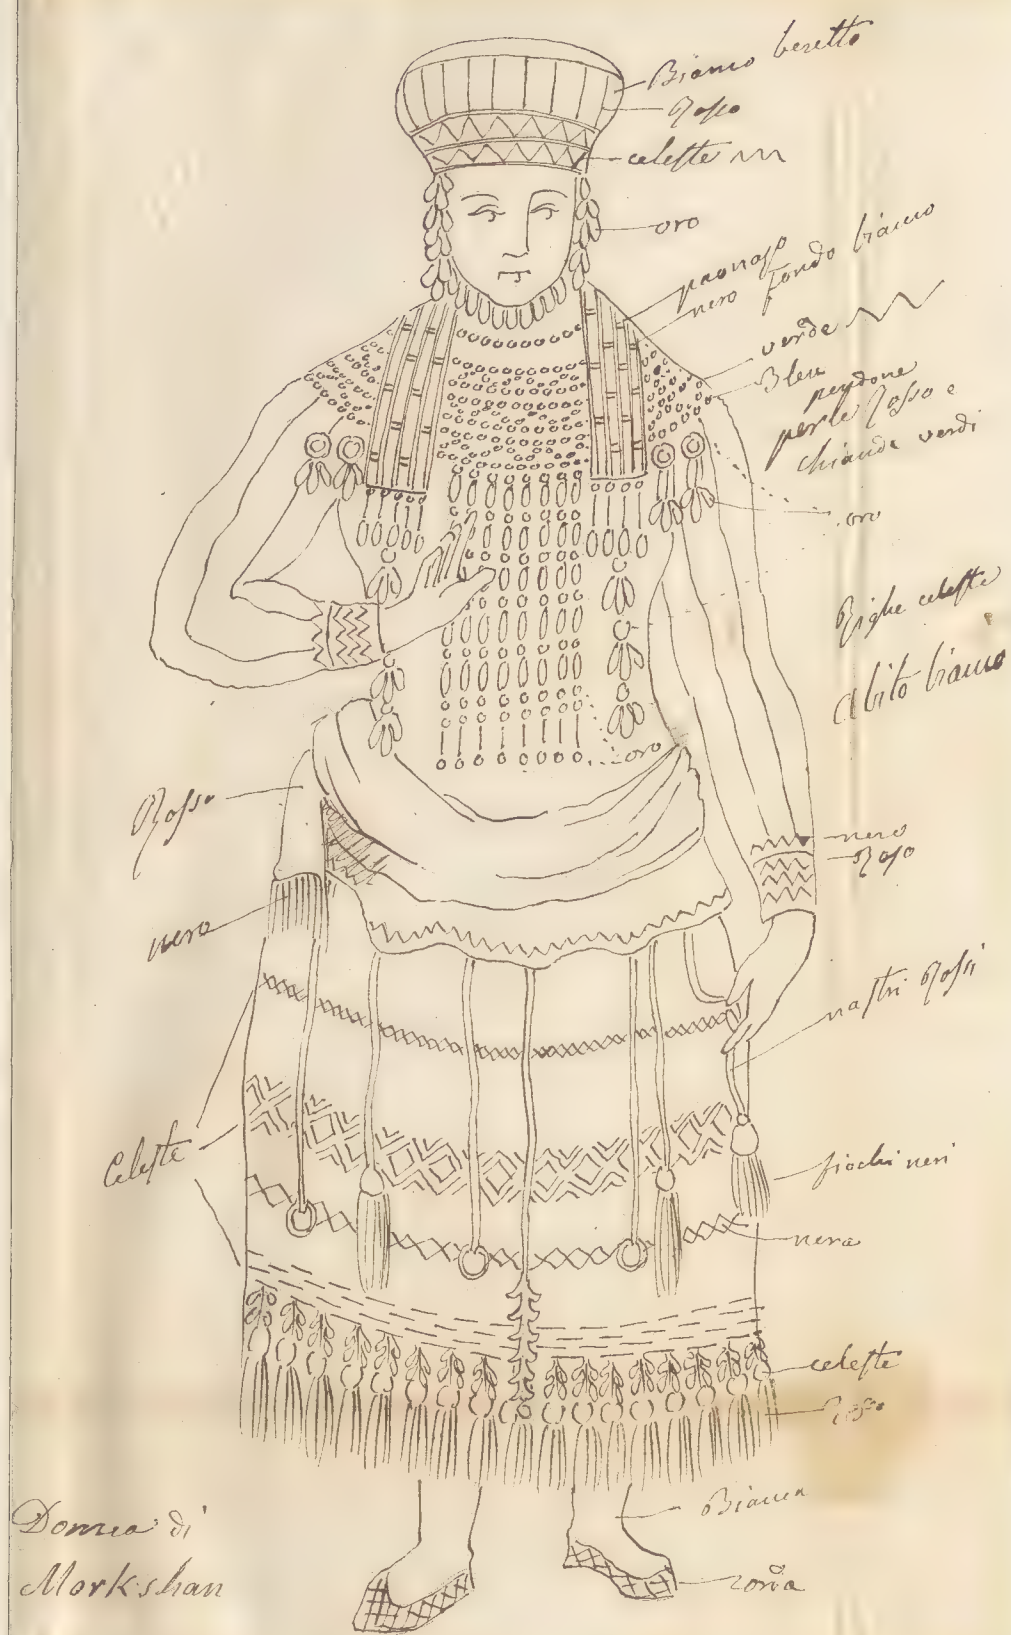 Bianco beretto
Rosso
celeste
oro
paonaso
nero fondo bianco
verde
Bleu
pendone
perle Rosso e
chiande verdi
oro
Righe celeste
Abito bianco
oro
Rosso
nero
Roso
nera
nastri Rossi
Celeste
fiochi neri
nera
celeste
Roso
Bianca
corda
Donna di
Morkshan